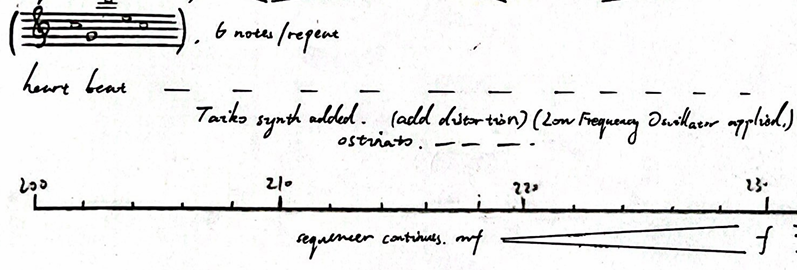 6 notes/repeat
heart beat
Taiko synth added. (add distortion) (Low Frequency Oscillator applied.)
ostinato.
200 210 220 230
sequencer continues. mf f